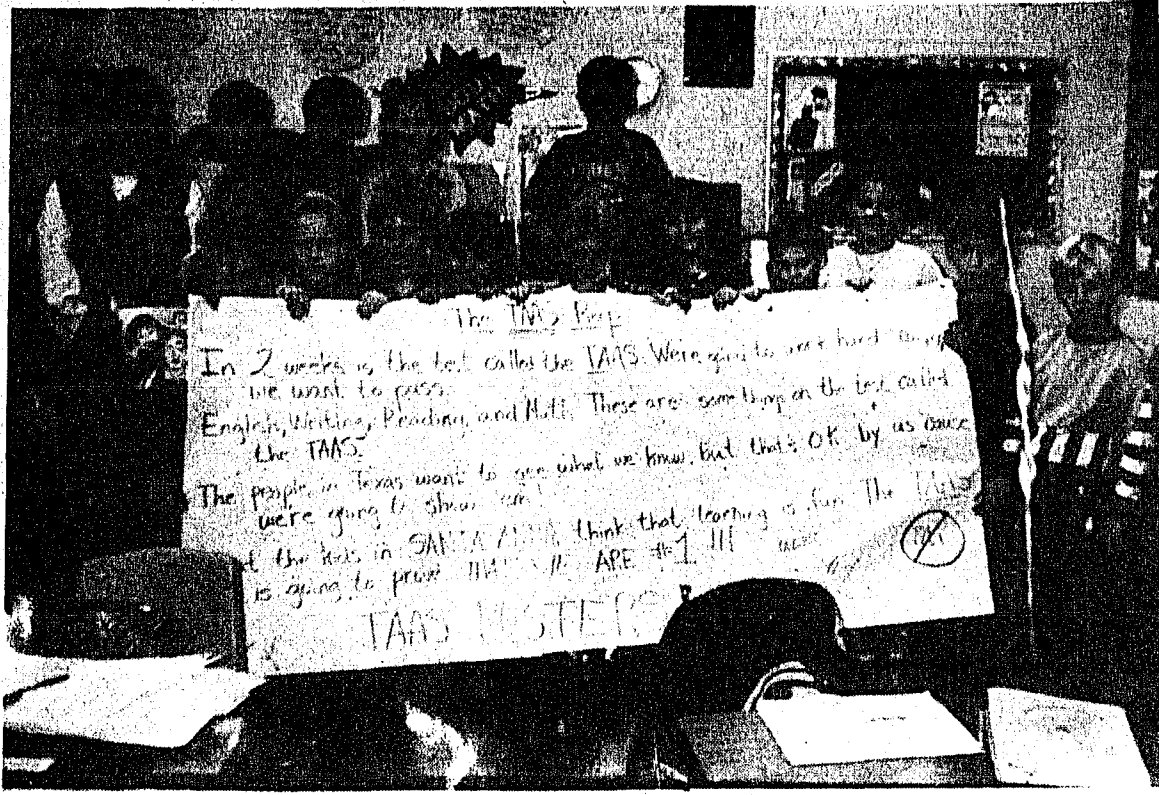 The TAAS Rap
In 2 weeks is the test called the TAAS. Were going to work hard cause
we want to pass.
English, Writing, Reading, and Math. These are some things on the test called
the TAAS.
The people in Texas want to see what we know, but that's OK by us cause
we're going to show em!
the kids in SANTA ANNA think that learning is fun. The TAAS
is going to prove THAT WE ARE #1 !!!
TAAS BUSTERS